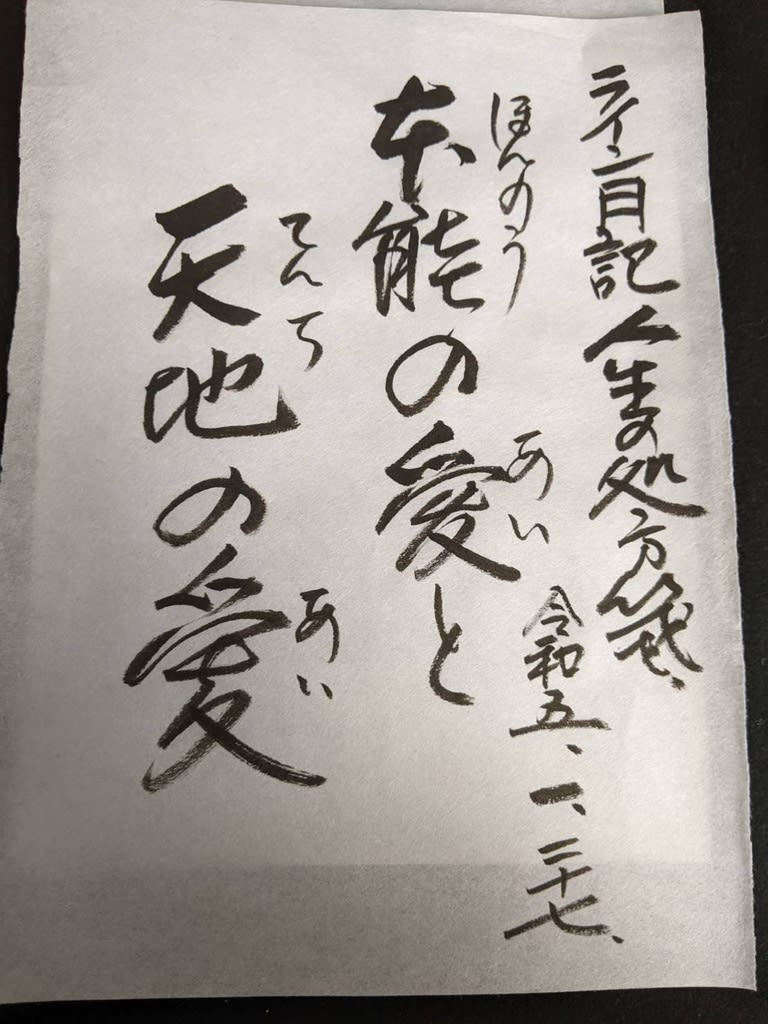 ライン日記人生の処方箋、
令和五、一、二十七、
ほんのう あい
本能の愛と
てんち あい
天地の愛